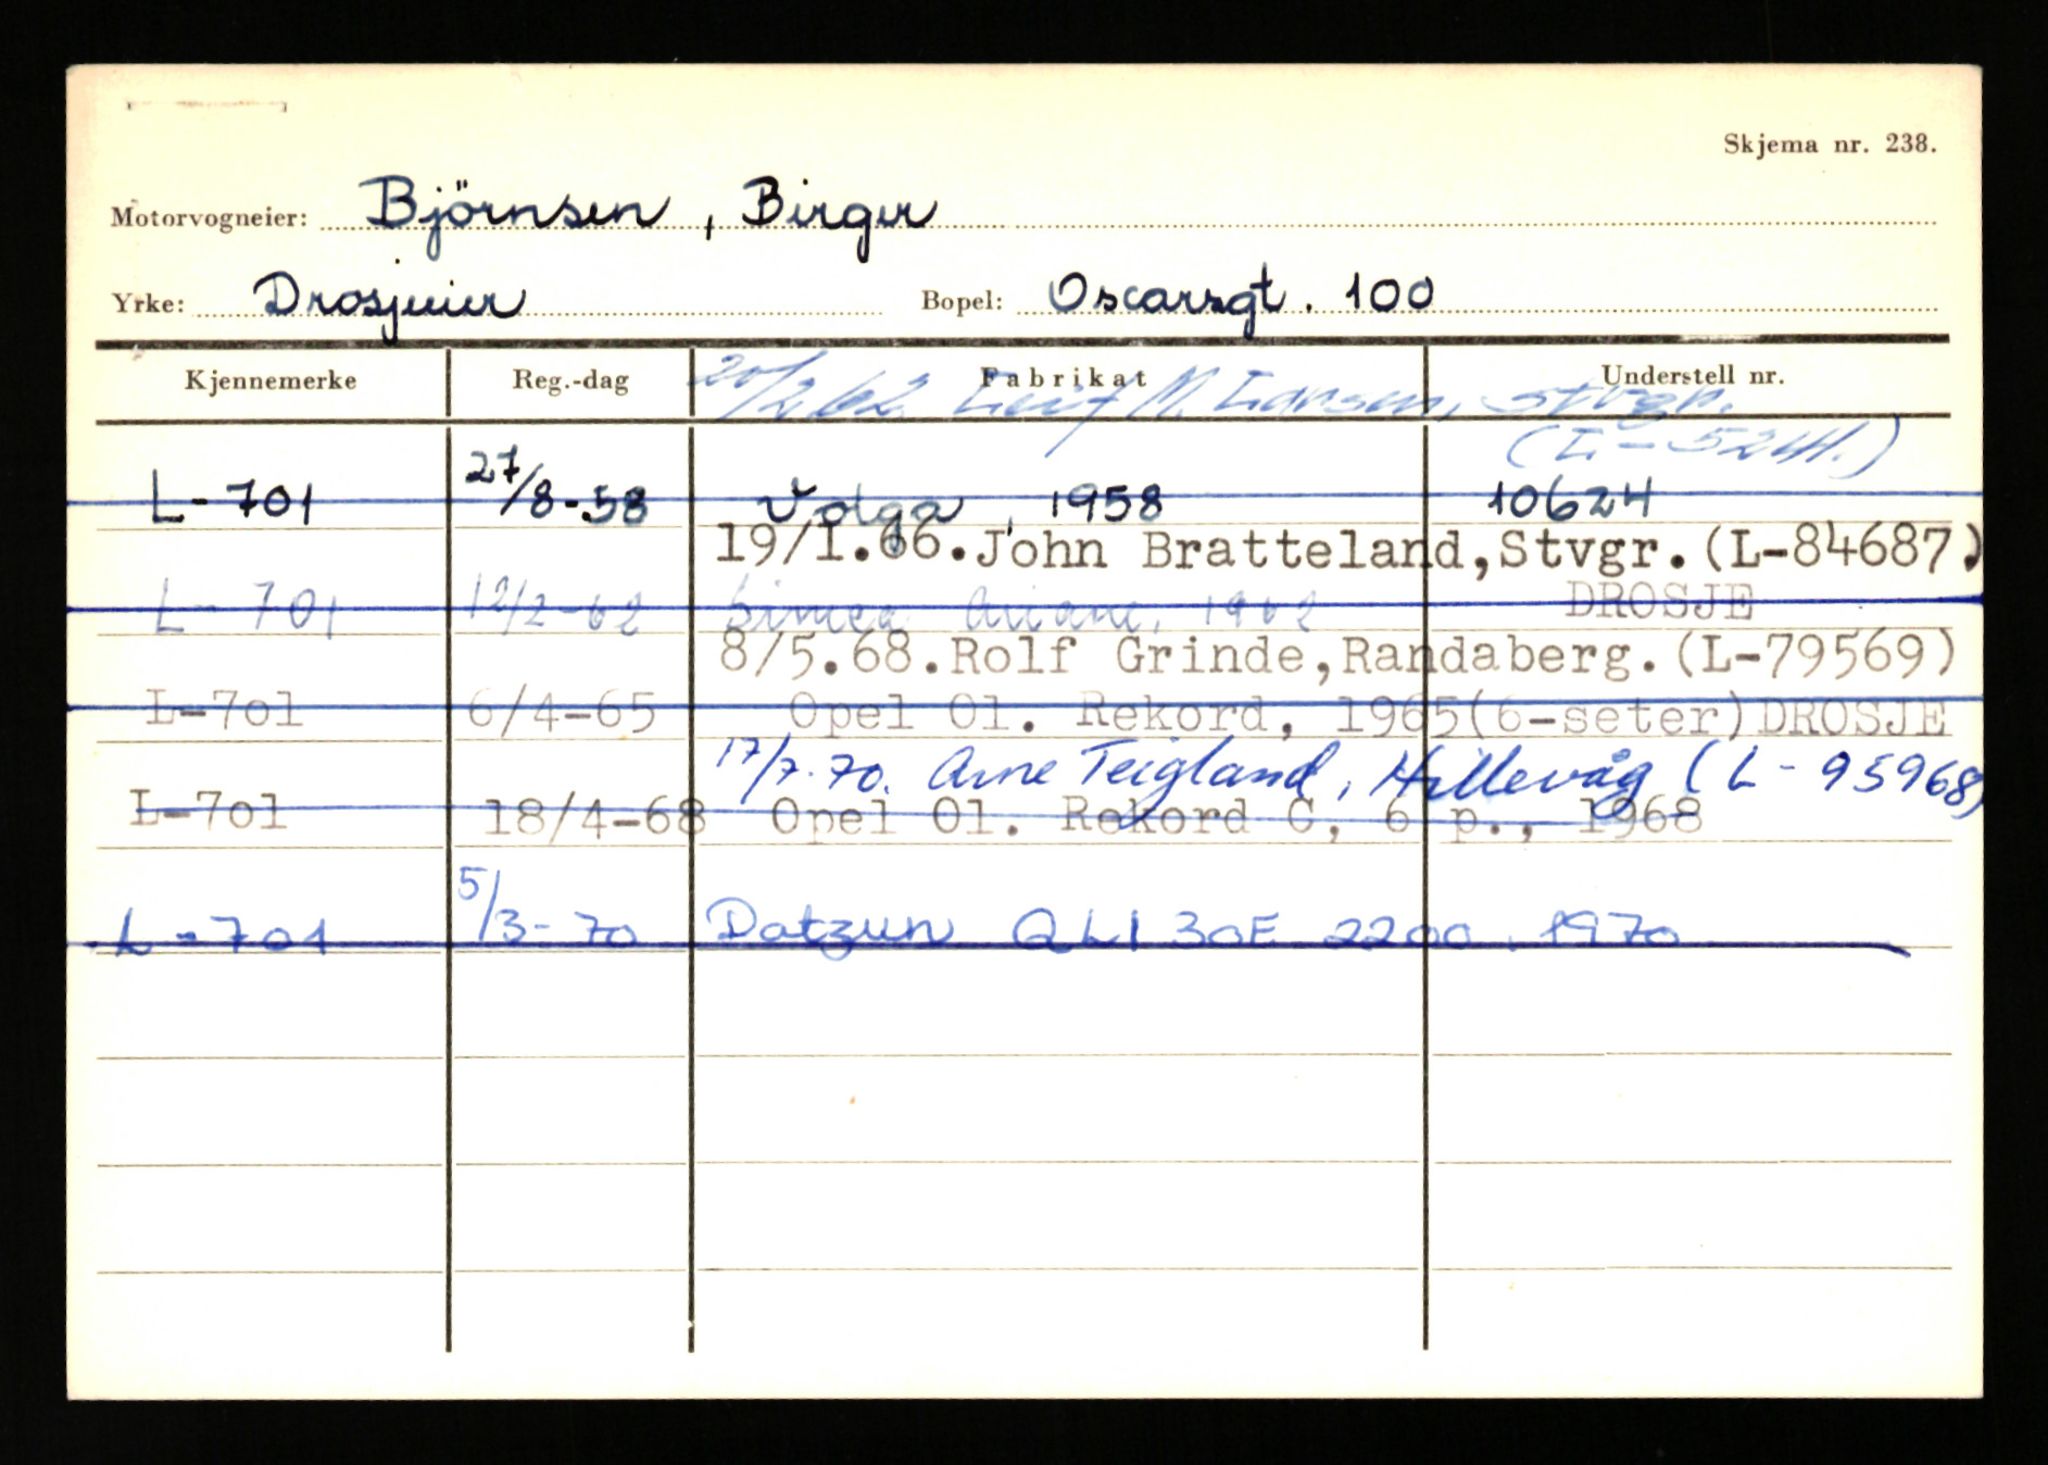 Skjema nr. 238.
Motorvogneier: Björnsen, Birger
Yrke: Drosjeeier Bopel: Oscarsgt. 100
Kjennemerke Reg.-dag Fabrikat Understell nr.
20/2 62 Leif M. Larsen, Stvgr.
(L-5241.)
L-701 27/8-58 Volga, 1958 10624
19/1.66.John Bratteland,Stvgr.(L-84687.)
L-701 12/2-62 Simca Ariane, 1962 DROSJE
8/5.68.Rolf Grinde,Randaberg.(L-79569)
L-7o1 6/4-65 Opel Ol. Rekord, 1965(6-seter)DROSJE
17/7.70. Arne Teigland, Hillevåg (L-95968)
L-7o1 18/4-68 Opel Ol. Rekord C, 6 p., 1968
L-701 5/3-70 Datzun QL130E 2200. 1970